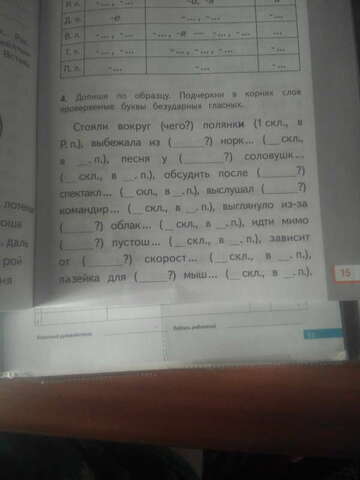 Д. п. -е -..., -... -...
В. п. -..., -... -..., -й — -..., -... ...
Т. п. -..., -... -..., -..., -... -...
П. п. -... -..., -... -...
4. Допиши по образцу. Подчеркни в корнях слов
проверяемые буквы безударных гласных.
Стояли вокруг (чего?) полянки (1 скл., в
Р. п.), выбежала из (____?) норк... (__скл.,
в __. п.), песня у (____?) соловушк...
(__скл., в __. п.), обсудить после (____?)
спектакл... (__скл., в __. п.), выслушал (____?)
командир... (__скл., в __. п.), выглянуло из-за
(____?) облак... (__скл., в __. п.), идти мимо
(____?) пустош... (__скл., в __. п.), зависит
от (____?) скорост... (__скл., в __. п.),
лазейка для (____?) мыш... (__скл., в __. п.).
15
даль
рой
ния